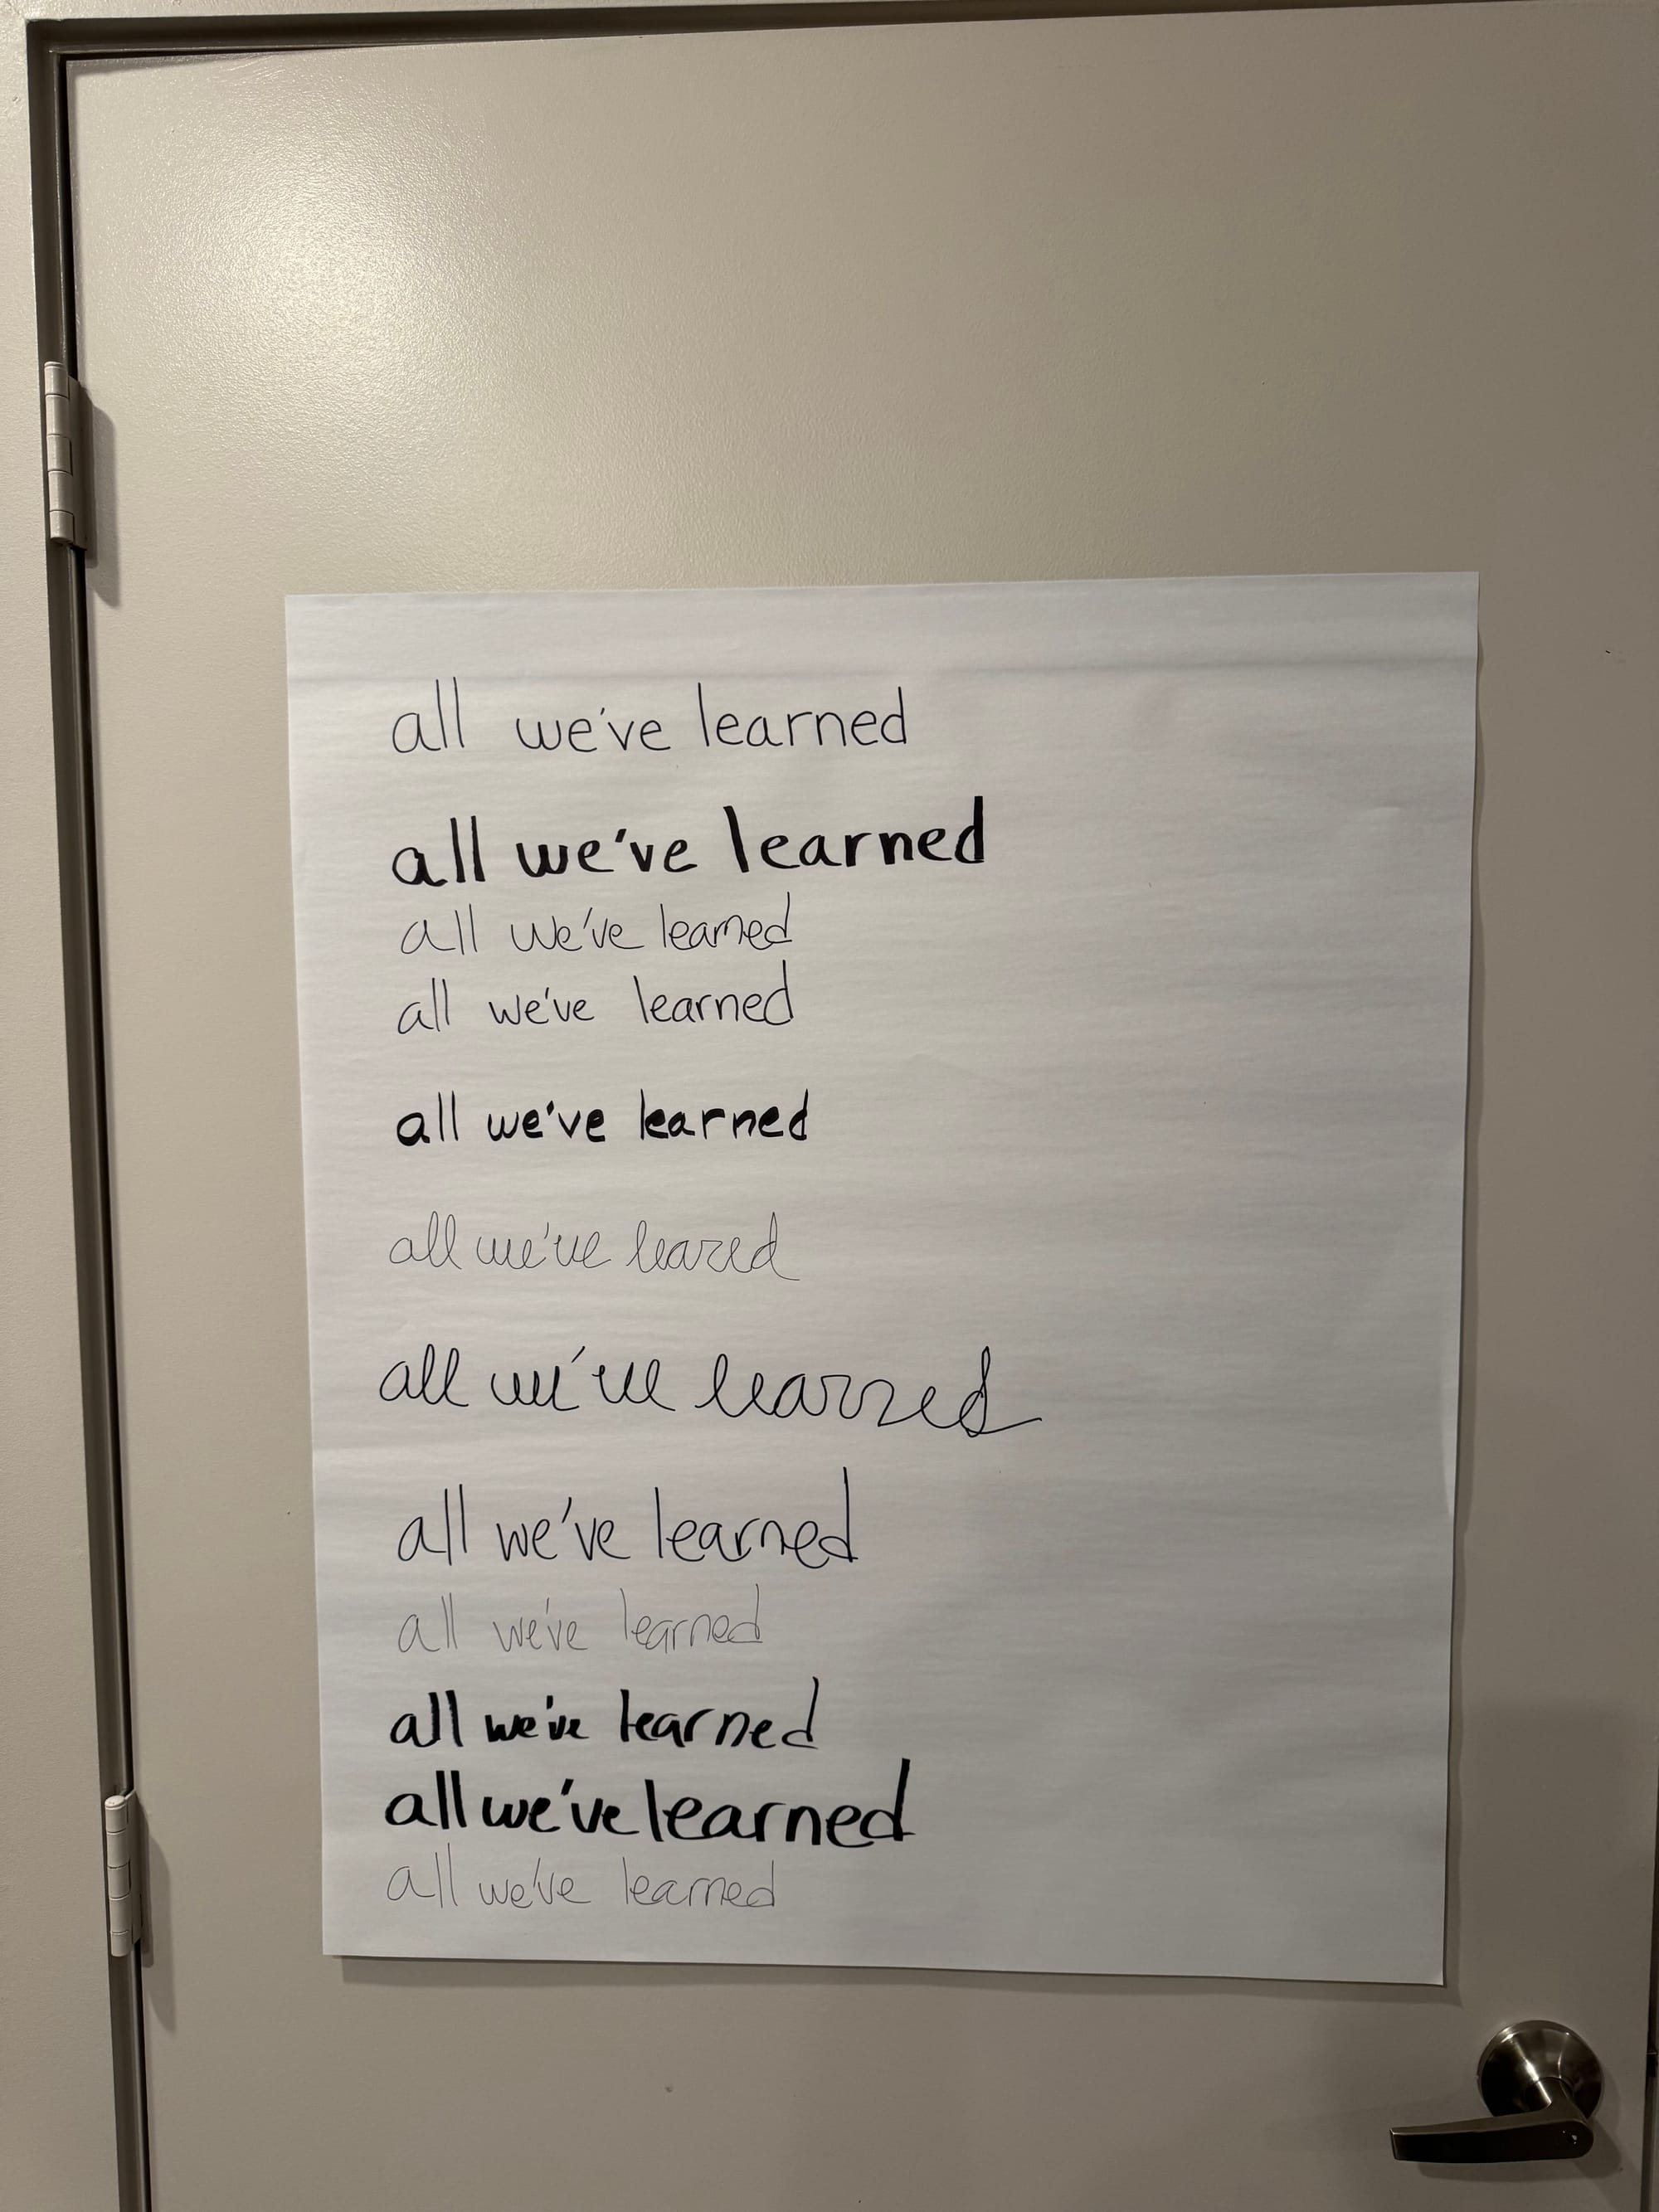 all we've learned
all we've learned
all we've learned
all we've learned
all we've learned
all we've leared
all we've learned
all we've learned
all we've learned
all we've learned
all we've learned
all we've learned